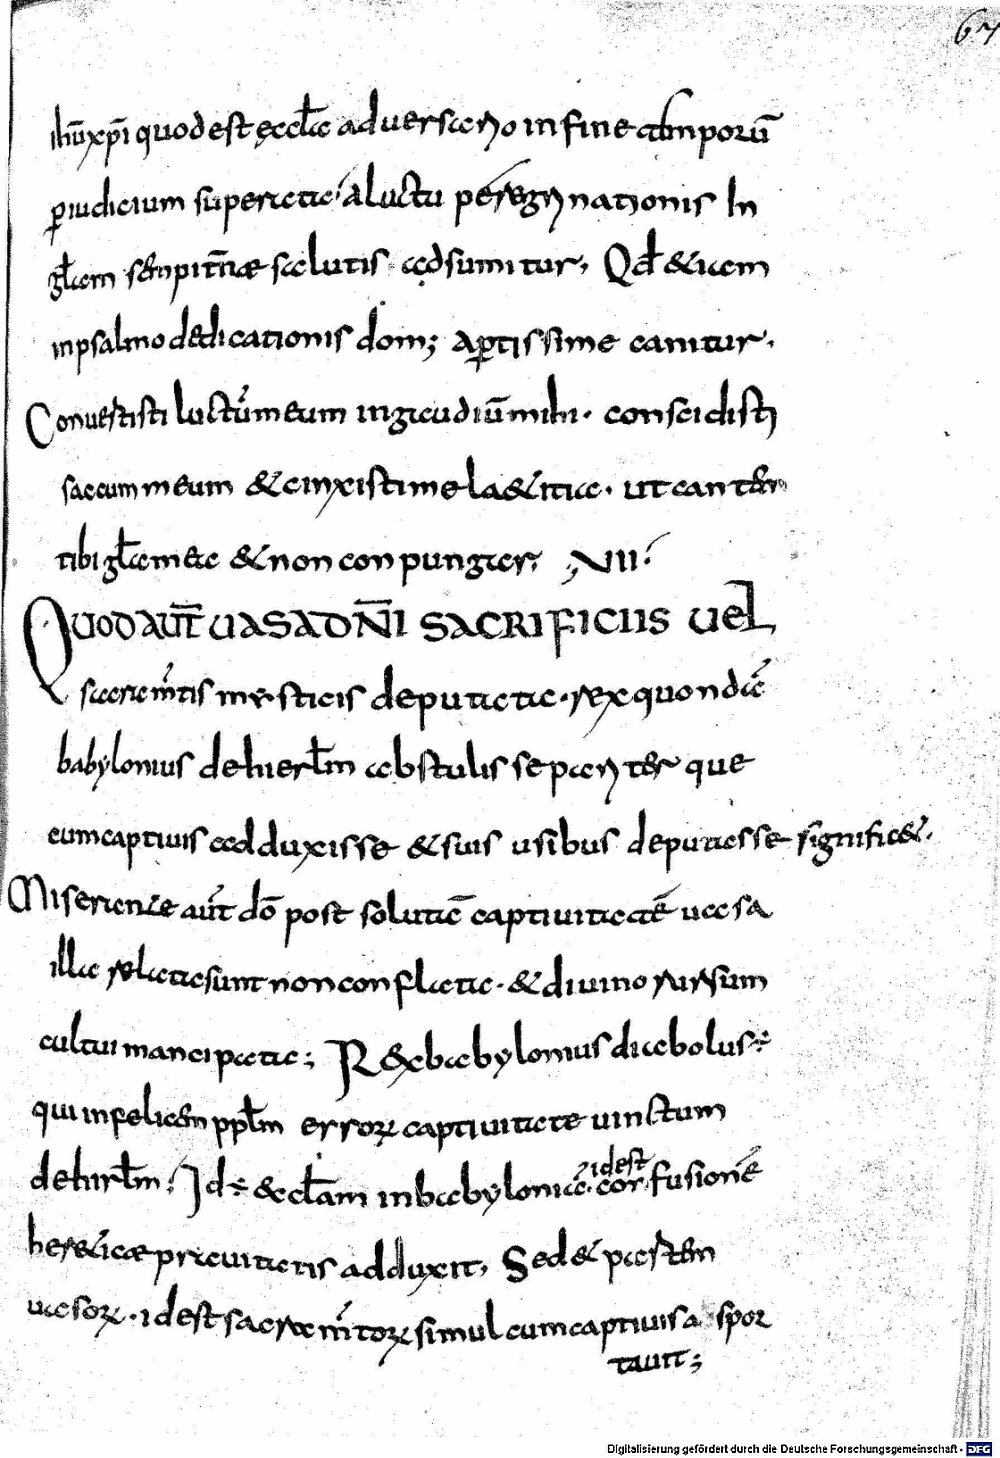 67
ihū xpī quod est ęccłae adversario in fine temporū
p iudicium superata a luctu peregrinationis In
głam sempitnae salutis adsumitur, Qđ & iam
in psalmo dedicationis dom; aptissime canitur,
Convertisti luctū meum in gaudiū mihi. conscidisti
saccum meum & cinxisti me laetitia. ut cantem
tibi głam ea & non conpungar; XII
QUOD AUT̄ UASA DN̄I SACRIFICIIS UEL
sacramtis mysticis deputata. rex quondā
babylonius de hierłm abstulisse pariter que
cum captivis adduxisse & suis usibus deputasse significat.
Miserante aut dō post solutā captivitatē vasa
illa relata sunt non conflata. & divino rursum
cultui mancipata; Rex babylonius diabolus ÷
qui infelicem ppłm errore captivitate vinctum
de hirłm. Id ÷ aecclam in babyloniā. idest confusionē
hereticae pravitatis adduxit, Sed & partem
vasorum. idest sacramtorum simul cum captivis aspor
tavit;
Digitalisierung gefördert durch die Deutsche Forschungsgemeinschaft - DFG